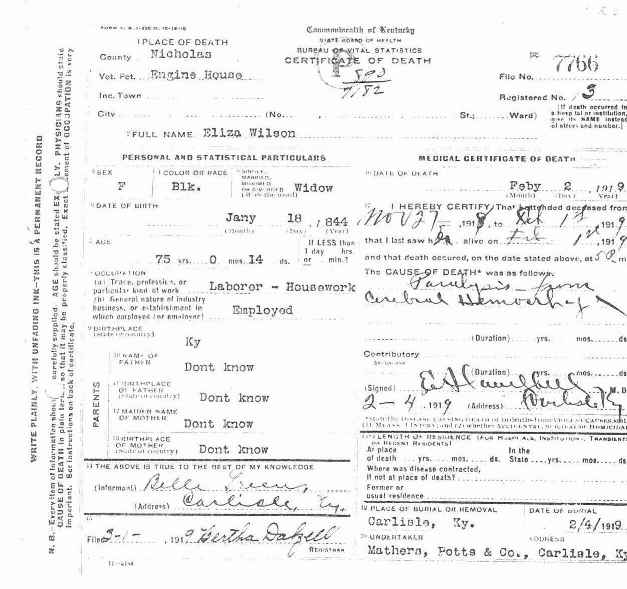 Commonwealth of Kentucky
STATE BOARD OF HEALTH
BUREAU OF VITAL STATISTICS
CERTIFICATE OF DEATH
1 PLACE OF DEATH
County Nicholas
Vot. Pct. Engine House
Inc. Town
City (No. St.; Ward)
7766
File No.
Registered No. 3
(If death occurred in
a hospital or institution,
give its NAME instead
of street and number.)
FULL NAME Eliza Wilson
PERSONAL AND STATISTICAL PARTICULARS
SEX
F
COLOR OR RACE
Blk.
Widow
DATE OF BIRTH
Jany 18, 1844
(Month) (Day) (Year)
AGE
75 yrs. 0 mos. 14 ds.
If LESS than
1 day hrs.
or min.?
OCCUPATION
(a) Trade, profession, or
particular kind of work Laboror - Housework
(b) General nature of industry
business, or establishment in
which employed (or employer) Employed
BIRTHPLACE
(State or country)
Ky
PARENTS
NAME OF
FATHER
Dont know
BIRTHPLACE
OF FATHER
(State or country)
Dont know
MAIDEN NAME
OF MOTHER
Dont know
BIRTHPLACE
OF MOTHER
(State or country)
Dont know
THE ABOVE IS TRUE TO THE BEST OF MY KNOWLEDGE
(Informant) Belle Green
(Address) Carlisle, Ky.
Filed 191 Bertha Dalzell
REGISTRAR
MEDICAL CERTIFICATE OF DEATH
DATE OF DEATH
Feby 2, 1919
(Month) (Day) (Year)
I HEREBY CERTIFY, That I attended deceased from
Nov 27, 1918, to Feb 1st, 1919
that I last saw her alive on Feb 1st, 1919
and that death occurred, on the date stated above, at
The CAUSE OF DEATH* was as follows:
Paralysis from
Cerebral Hemorrhage
(Duration) yrs. mos. ds
Contributory
(Duration) yrs. mos. ds
(Signed) M. D.
2-4, 1919 (Address) Carlisle Ky
LENGTH OF RESIDENCE (FOR HOSPITALS, INSTITUTIONS, TRANSIENTS
OR RECENT RESIDENTS)
At place In the
of death yrs. mos. ds. State yrs. mos. ds
Where was disease contracted,
if not at place of death?
Former or
usual residence
PLACE OF BURIAL OR REMOVAL
Carlisle, Ky.
DATE OF BURIAL
2/4/1919
UNDERTAKER
ADDRESS
Mathers, Potts & Co., Carlisle, Ky
WRITE PLAINLY, WITH UNFADING INK—THIS IS A PERMANENT RECORD
N. B.—Every item of information should carefully supplied. AGE should be stated EX LY. PHYSICIANS should state
CAUSE OF DEATH in plain terms, so that it may be properly classified. Exact statement of OCCUPATION is very
important. See instructions on back of certificate.